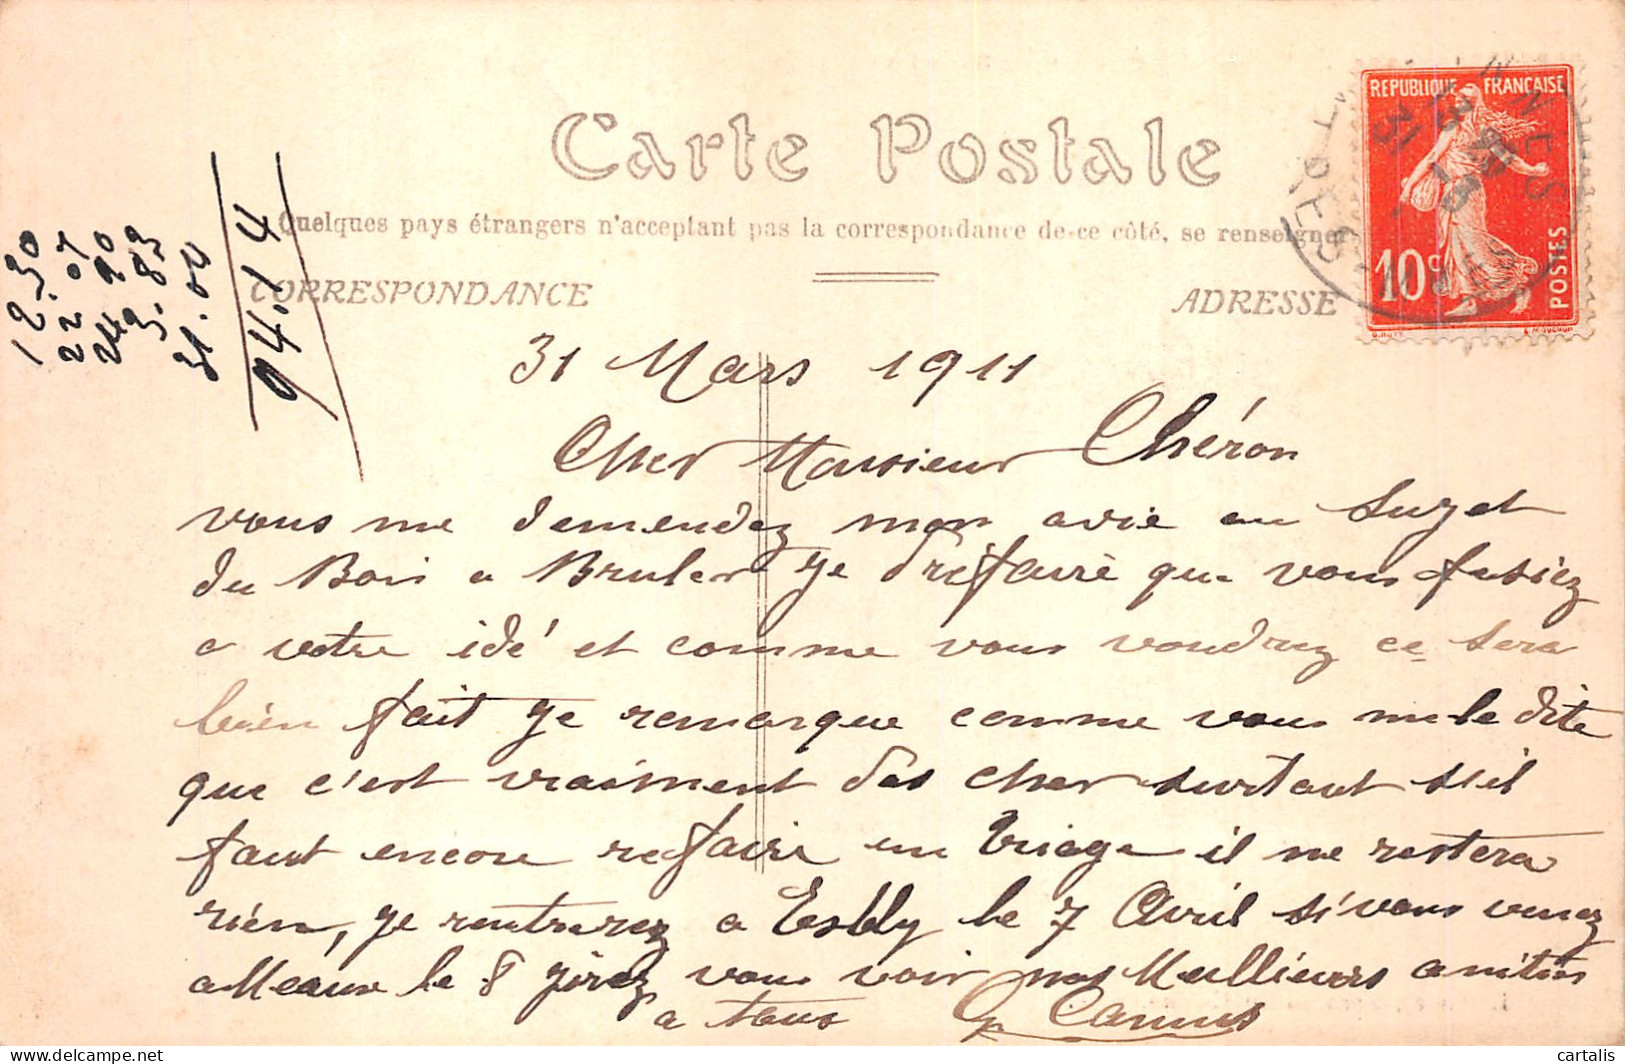 Carte Postale
Quelques pays étrangers n'acceptant pas la correspondance de ce côté, se renseigner
CORRESPONDANCE
ADRESSE
REPUBLIQUE FRANÇAISE
10c
POSTES
12.30
22.07
24.90
3.83
31.04
94.14
31 Mars 1911
Cher Monsieur Chéron
vous me demendez mon avie au Sujet
du Bois a Bruler je préfaire que vous fassiez
a votre idé et comme vous voudrez ce sera
bien fait je remarque comme vous me le dite
que c'est vraiment pas cher surtout s'il
faut encore refaire un triage il me restera
rien, je rentrerez a Esbly le 7 Avril si vous venez
a Meaux le 8 j'irez vous voir nos Meillieurs amitiés
a tous Camus
cartalis
delcampe.net